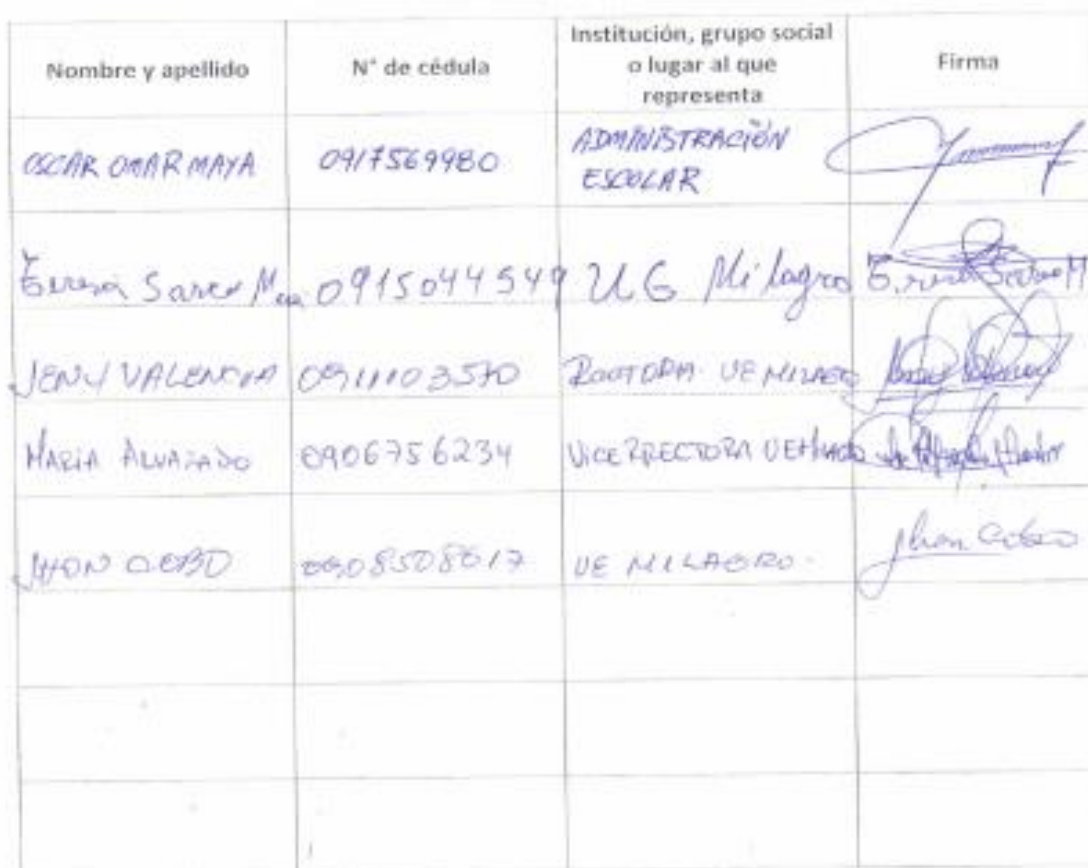 Nombre y apellido
N° de cédula
Institución, grupo social
o lugar al que
representa
Firma
OSCAR OMAR MAYA
0917569980
ADMINISTRACIÓN
ESCOLAR
0915044549
UG Milagro
JENNY VALENCIA
0911103570
UE MILAGRO
MARIA ALVARADO
0906756234
VICERRECTORA
JHON COBO
0908508017
UE MILAGRO.
Jhon Cobo